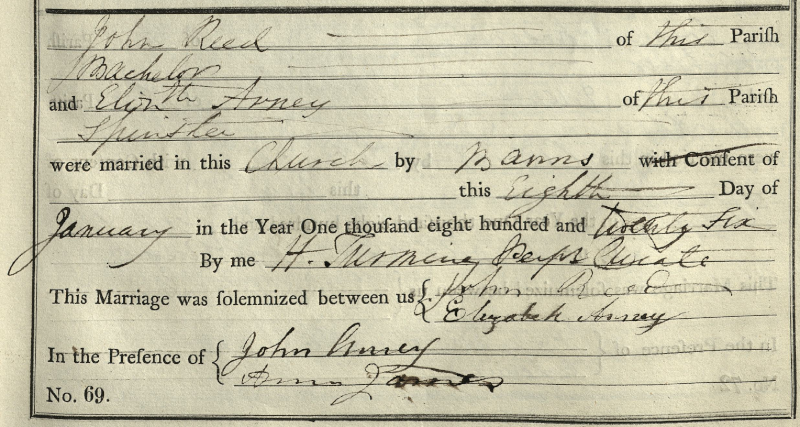 John Reed of this Pariſh
Bachelor
and Elizth Arney of this Pariſh
Spinster
were married in this Church by Banns with Conſent of
this Eighth Day of
January in the Year One thouſand eight hundred and twenty Six
By me H. Perpl Curate
This Marriage was ſolemnized between us { John Reed
Elizabeth Arney
In the Preſence of { John Arney
Ann James
No. 69.